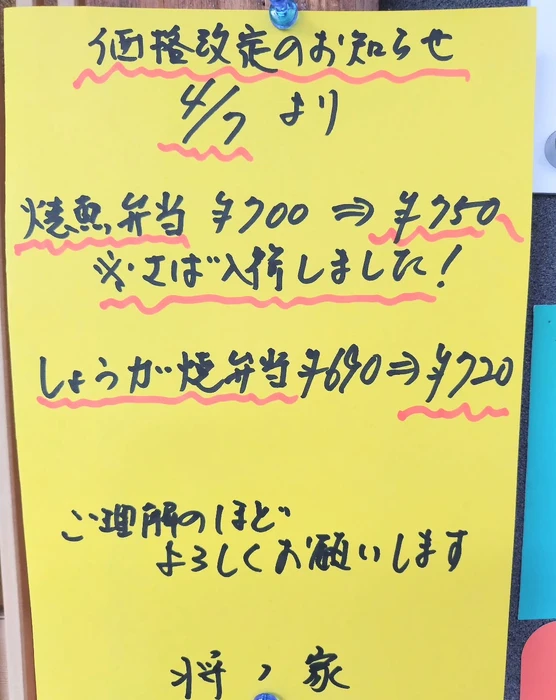 価格改定のお知らせ
4/7 より
焼魚弁当 ¥700 ⇒ ¥750
※さば入荷しました!
しょうが焼弁当 ¥690 ⇒ ¥720
ご理解のほど
よろしくお願いします
将ノ家